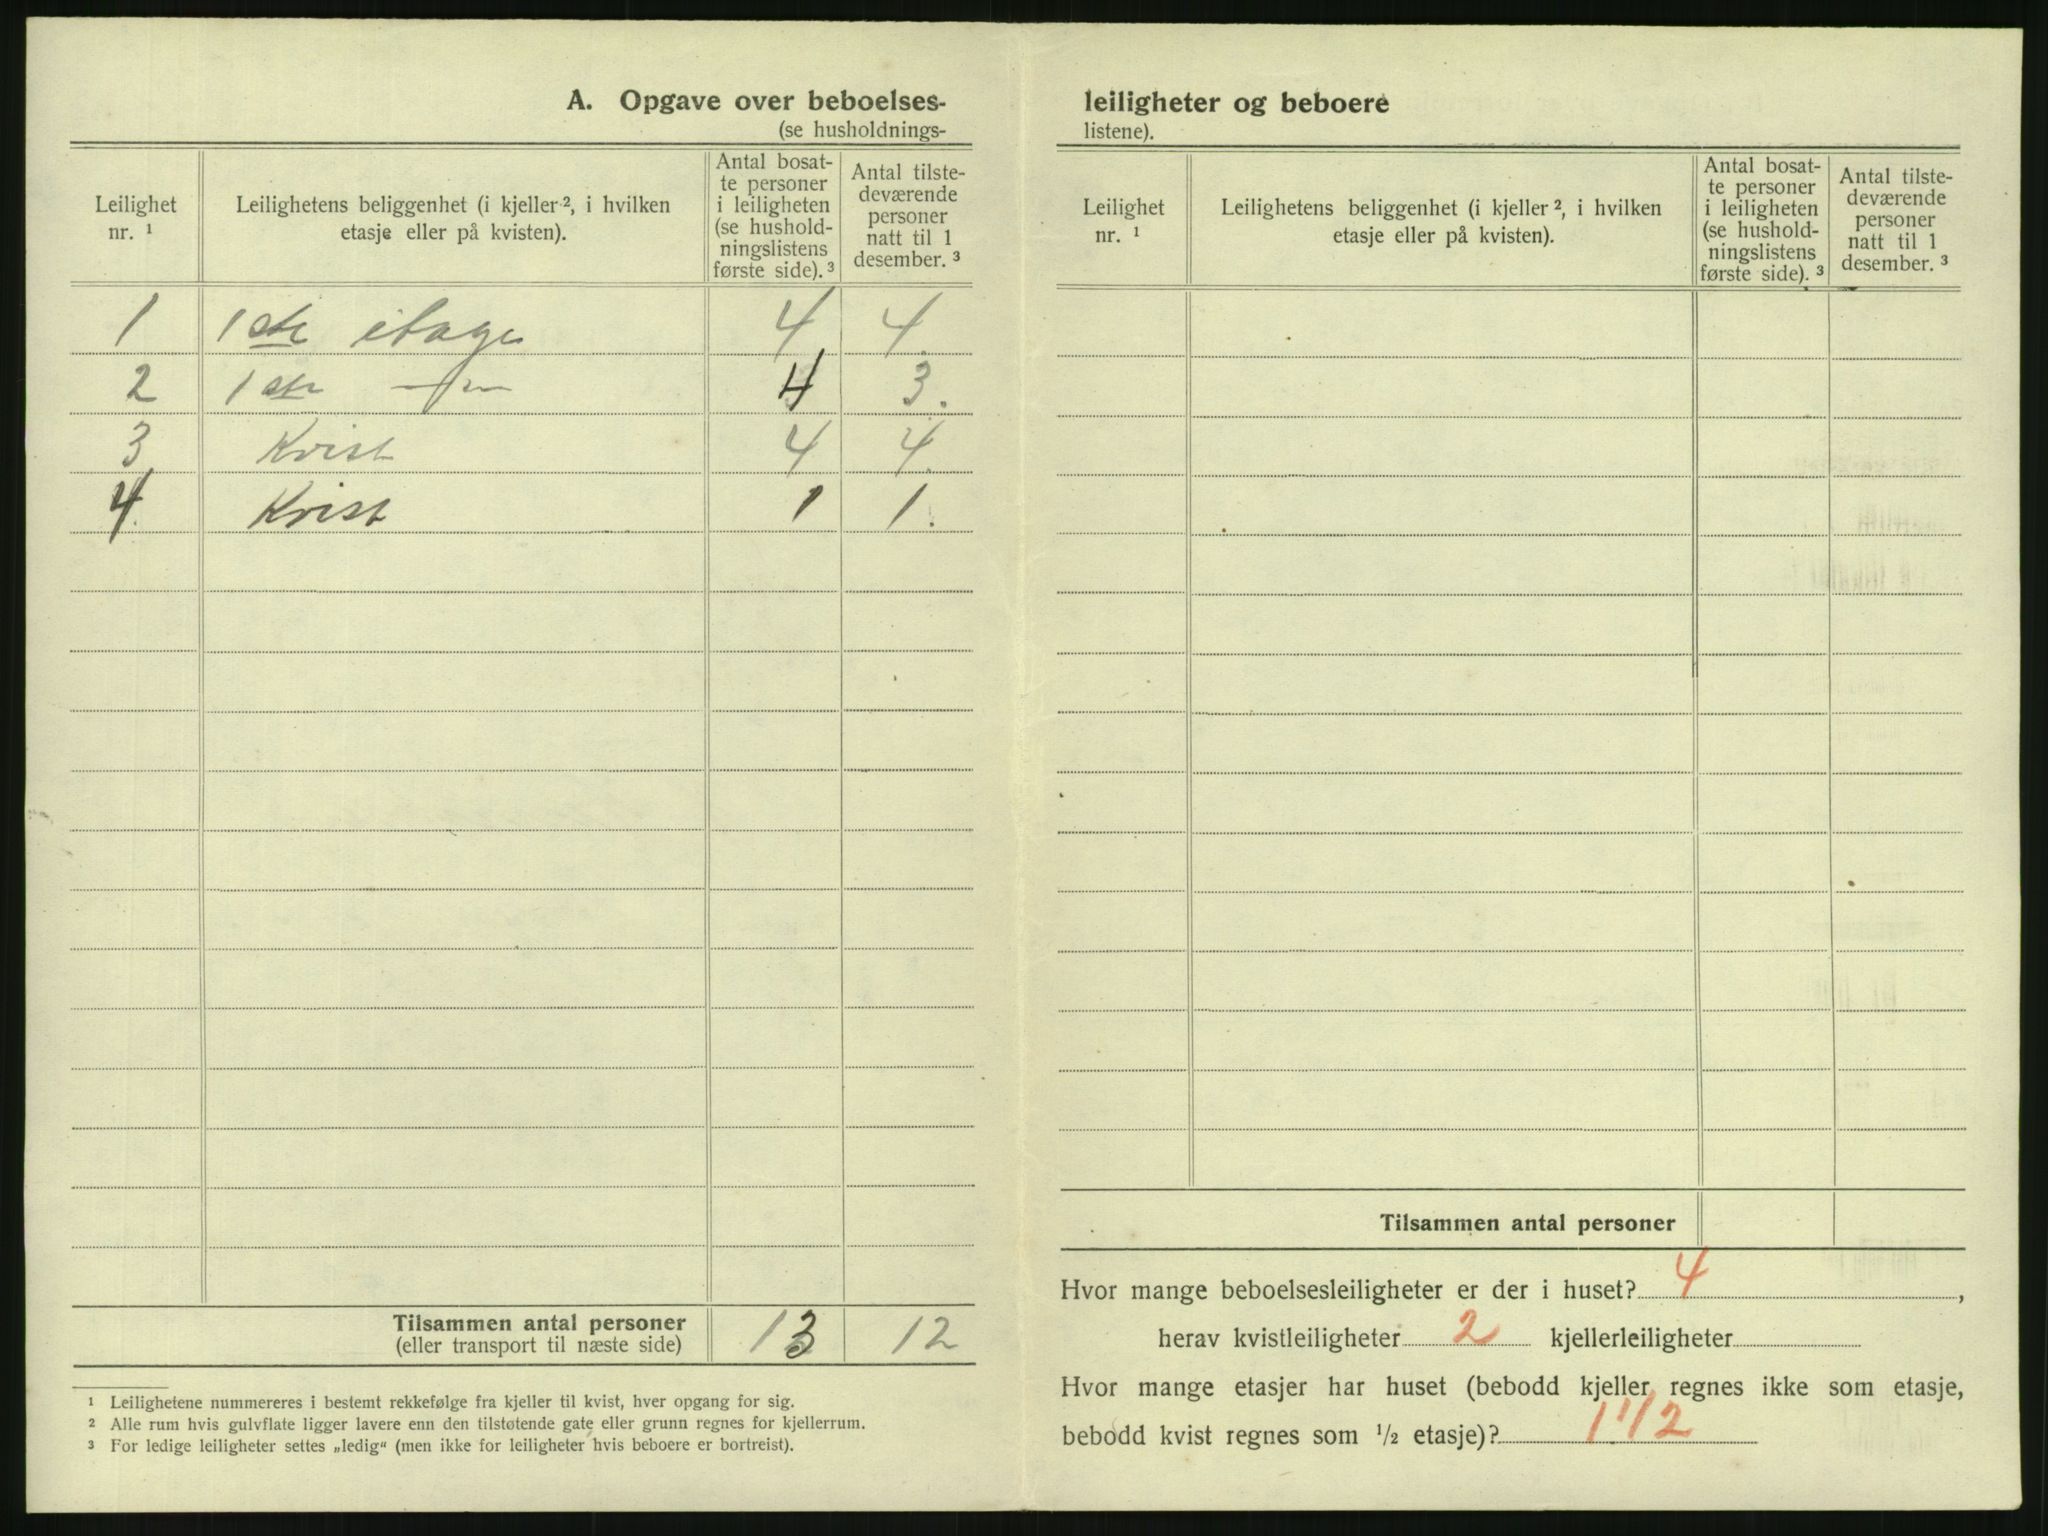 A. Opgave over beboelses-
(se husholdnings-
Leilighet nr. ¹
Leilighetens beliggenhet (i kjeller ², i hvilken etasje eller på kvisten).
Antal bosat-
te personer
i leiligheten
(se hushold-
ningslistens
første side). ³
Antal tilste-
deværende
personer
natt til 1
desember. ³
1 1ste etage 4 4.
2 1ste —"— 4 3.
3 Kvist 4 4.
4. Kvist 1 1.
Tilsammen antal personer 13 12
(eller transport til næste side)
¹ Leilighetene nummereres i bestemt rekkefølge fra kjeller til kvist, hver opgang for sig.
² Alle rum hvis gulvflate ligger lavere enn den tilstøtende gate eller grunn regnes for kjellerrum.
³ For ledige leiligheter settes „ledig“ (men ikke for leiligheter hvis beboere er bortreist).
leiligheter og beboere
listene).
Leilighet nr. ¹
Leilighetens beliggenhet (i kjeller ², i hvilken etasje eller på kvisten).
Antal bosat-
te personer
i leiligheten
(se hushold-
ningslistens
første side). ³
Antal tilste-
deværende
personer
natt til 1
desember. ³
Tilsammen antal personer
Hvor mange beboelsesleiligheter er der i huset? 4,
herav kvistleiligheter 2 kjellerleiligheter
Hvor mange etasjer har huset (bebodd kjeller regnes ikke som etasje,
bebodd kvist regnes som ½ etasje)? 1 1/2